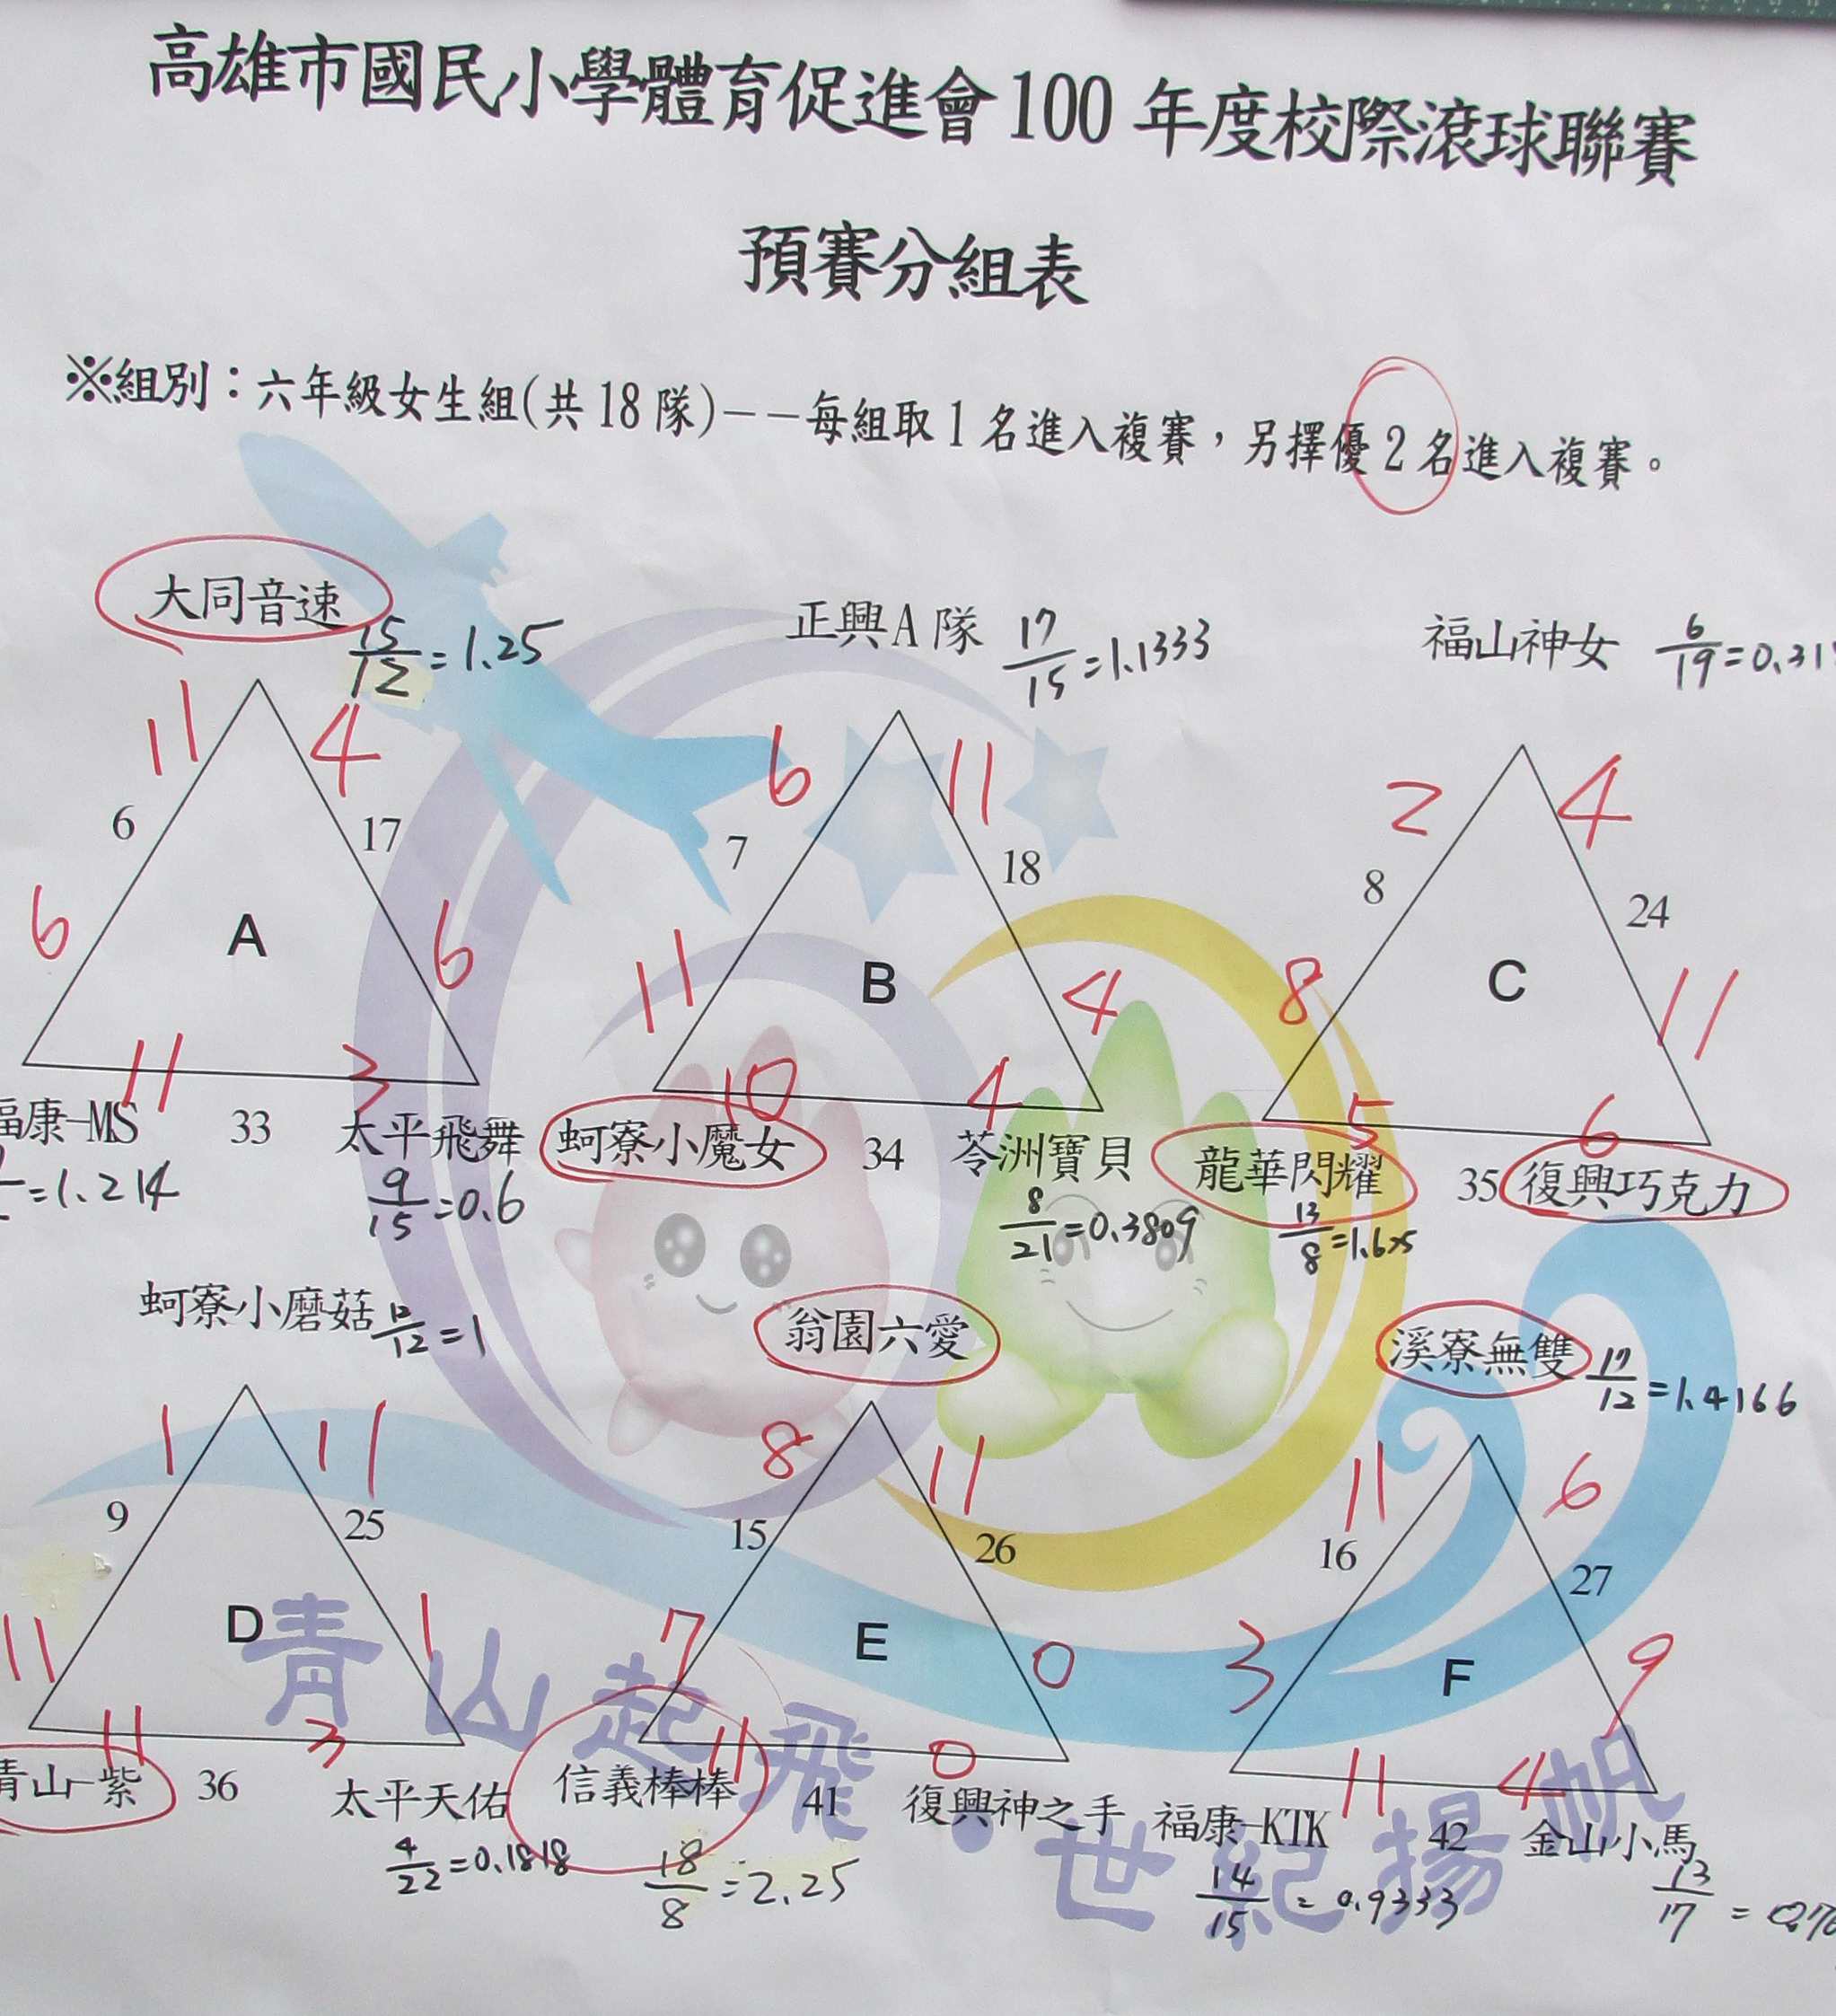 高雄市國民小學體育促進會100 年度校際滾球聯賽
預賽分組表
※組別：六年級女生組(共18隊)－－每組取1名進入複賽，另擇優2名進入複賽。
大同音速 15/12=1.25
正興A隊 17/15=1.1333
福山神女 6/19=0.31
11 4
6 11
2 4
6 17
7 18
8 24
6 A 6
11 B 4
8 C 11
11 3
10 4
5 6
福康-MS 33 太平飛舞
蚵寮小魔女 34 苓洲寶貝
龍華閃耀 35 復興巧克力
=1.214
9/15=0.6
8/21=0.3809
13/8=1.625
蚵寮小磨菇 12/12=1
翁園六愛
溪寮無雙 17/12=1.4166
1 11
8 11
11 6
9 25
15 26
16 27
11 D 1
7 E 0
3 F 9
11 3
11 0
11 4
青山-紫 36 太平天佑
信義棒棒 41 復興神之手
福康-KTK 42 金山小馬
4/22=0.1818
18/8=2.25
14/15=0.9333
13/17=0.76
青山起飛•世紀揚帆